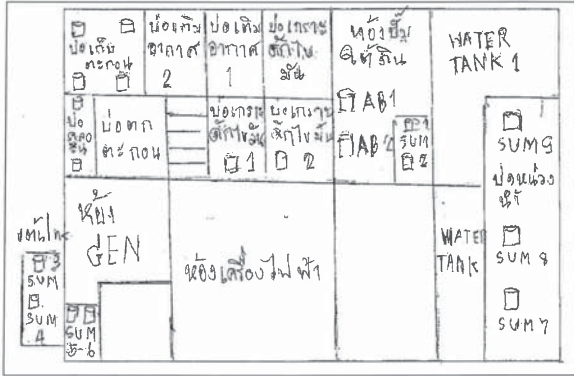 บ่อเก็บ
ตะกอน
บ่อเติม
อากาศ
2
บ่อเติม
อากาศ
1
บ่อเกราะ
ดักไข
มัน
ห้องปั๊ม
ใต้ดิน
WATER
TANK 1
บ่อ
บ่อตก
ตะกอน
บ่อเกราะ
ดักไขมัน
1
บ่อเกราะ
ดักไขมัน
2
AB1
AB
1
SUM
2
SUM 9
บ่อหน่วง
น้ำ
SUM 8
SUM 7
ห้อง
GEN
ห้องเครื่องไฟฟ้า
WATER
TANK
3
SUM
SUM
4
SUM
5-6